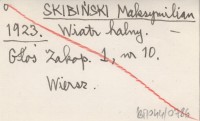 SKIBIŃSKI Maksymilian
1923. Wiatr halny. –
Głos Zakop. 1, nr 10.
Wiersz.